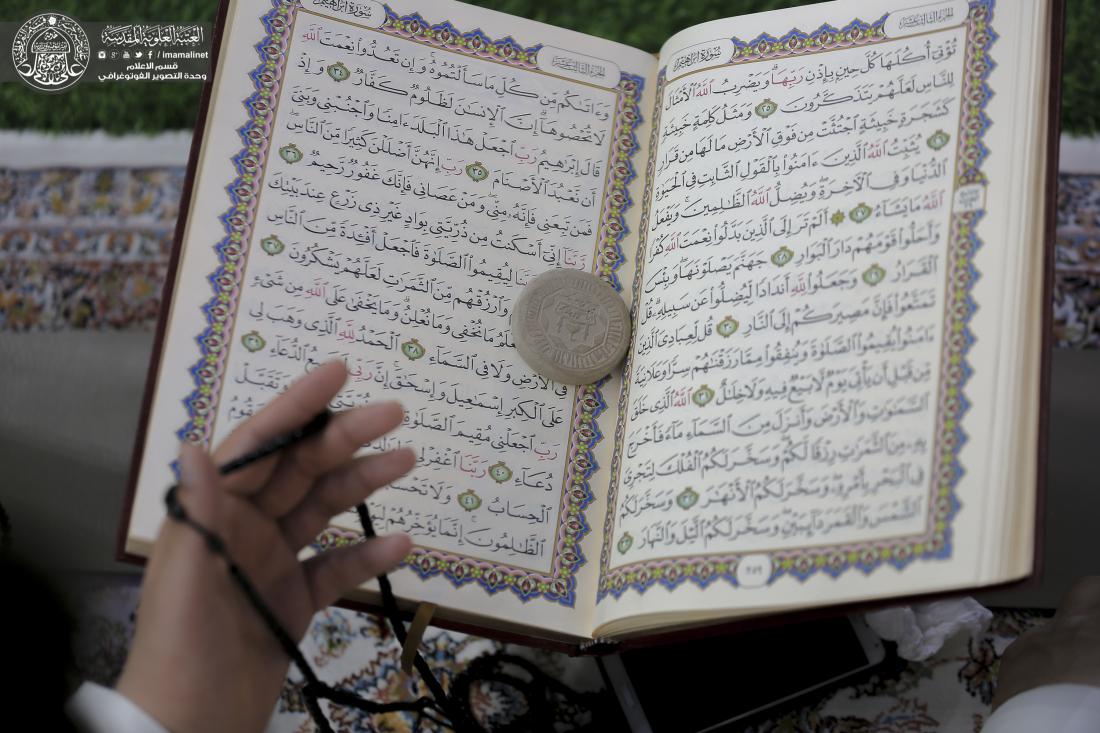 العتبة العلوية المقدسة
imamalinet
قسم الاعلام
وحدة التصوير الفوتوغرافي
سورة ابراهيم
الجزء الثالث عشر
تُؤْتِي أُكُلَهَا كُلَّ حِينٍ بِإِذْنِ رَبِّهَا وَيَضْرِبُ اللَّهُ الْأَمْثَالَ
لِلنَّاسِ لَعَلَّهُمْ يَتَذَكَّرُونَ ٢٥ وَمَثَلُ كَلِمَةٍ خَبِيثَةٍ
كَشَجَرَةٍ خَبِيثَةٍ اجْتُثَّتْ مِن فَوْقِ الْأَرْضِ مَا لَهَا مِن قَرَارٍ
٢٦ يُثَبِّتُ اللَّهُ الَّذِينَ ءَامَنُوا بِالْقَوْلِ الثَّابِتِ فِي الْحَيَوٰةِ
الدُّنْيَا وَفِي الْآخِرَةِ وَيُضِلُّ اللَّهُ الظَّالِمِينَ وَيَفْعَلُ
اللَّهُ مَا يَشَاءُ ٢٧ أَلَمْ تَرَ إِلَى الَّذِينَ بَدَّلُوا نِعْمَتَ اللَّهِ كُفْرًا
وَأَحَلُّوا قَوْمَهُمْ دَارَ الْبَوَارِ ٢٨ جَهَنَّمَ يَصْلَوْنَهَا وَبِئْسَ
الْقَرَارُ ٢٩ وَجَعَلُوا لِلَّهِ أَندَادًا لِّيُضِلُّوا عَن سَبِيلِهِ قُلْ
تَمَتَّعُوا فَإِنَّ مَصِيرَكُمْ إِلَى النَّارِ ٣٠ قُل لِّعِبَادِيَ الَّذِينَ
ءَامَنُوا يُقِيمُوا الصَّلَوٰةَ وَيُنفِقُوا مِمَّا رَزَقْنَاهُمْ سِرًّا وَعَلَانِيَةً
مِّن قَبْلِ أَن يَأْتِيَ يَوْمٌ لَّا بَيْعٌ فِيهِ وَلَا خِلَالٌ ٣١ اللَّهُ الَّذِي خَلَقَ
السَّمَوَٰتِ وَالْأَرْضَ وَأَنزَلَ مِنَ السَّمَاءِ مَاءً فَأَخْرَجَ
بِهِ مِنَ الثَّمَرَٰتِ رِزْقًا لَّكُمْ وَسَخَّرَ لَكُمُ الْفُلْكَ لِتَجْرِيَ
فِي الْبَحْرِ بِأَمْرِهِ وَسَخَّرَ لَكُمُ الْأَنْهَٰرَ ٣٢ وَسَخَّرَ لَكُمُ
الشَّمْسَ وَالْقَمَرَ دَائِبَيْنِ وَسَخَّرَ لَكُمُ الَّيْلَ وَالنَّهَارَ ٣٣
٢٥٩
سورة ابراهيم
الجزء الثالث عشر
وَءَاتَىٰكُم مِّن كُلِّ مَا سَأَلْتُمُوهُ وَإِن تَعُدُّوا نِعْمَتَ اللَّهِ
لَا تُحْصُوهَا إِنَّ الْإِنسَٰنَ لَظَلُومٌ كَفَّارٌ ٣٤ وَإِذْ
قَالَ إِبْرَٰهِيمُ رَبِّ اجْعَلْ هَٰذَا الْبَلَدَ ءَامِنًا وَاجْنُبْنِي وَبَنِيَّ
أَن نَّعْبُدَ الْأَصْنَامَ ٣٥ رَبِّ إِنَّهُنَّ أَضْلَلْنَ كَثِيرًا مِّنَ النَّاسِ
فَمَن تَبِعَنِي فَإِنَّهُ مِنِّي وَمَنْ عَصَانِي فَإِنَّكَ غَفُورٌ رَّحِيمٌ ٣٦
رَّبَّنَا إِنِّي أَسْكَنتُ مِن ذُرِّيَّتِي بِوَادٍ غَيْرِ ذِي زَرْعٍ عِندَ بَيْتِكَ
لِيُقِيمُوا الصَّلَوٰةَ فَاجْعَلْ أَفْئِدَةً مِّنَ النَّاسِ
وَارْزُقْهُم مِّنَ الثَّمَرَٰتِ لَعَلَّهُمْ يَشْكُرُونَ ٣٧
مَا نُخْفِي وَمَا نُعْلِنُ وَمَا يَخْفَىٰ عَلَى اللَّهِ مِن شَيْءٍ
فِي الْأَرْضِ وَلَا فِي السَّمَاءِ ٣٨ الْحَمْدُ لِلَّهِ الَّذِي وَهَبَ لِي
عَلَى الْكِبَرِ إِسْمَٰعِيلَ وَإِسْحَٰقَ إِنَّ رَبِّي الدُّعَاءِ ٣٩
رَبِّ اجْعَلْنِي مُقِيمَ الصَّلَوٰةِ وَتَقَبَّلْ
دُعَاءِ ٤٠ رَبَّنَا اغْفِرْ لِي يَقُومُ
الْحِسَابُ ٤١ وَلَا
الظَّٰلِمُونَ إِنَّمَا يُؤَخِّرُهُمْ